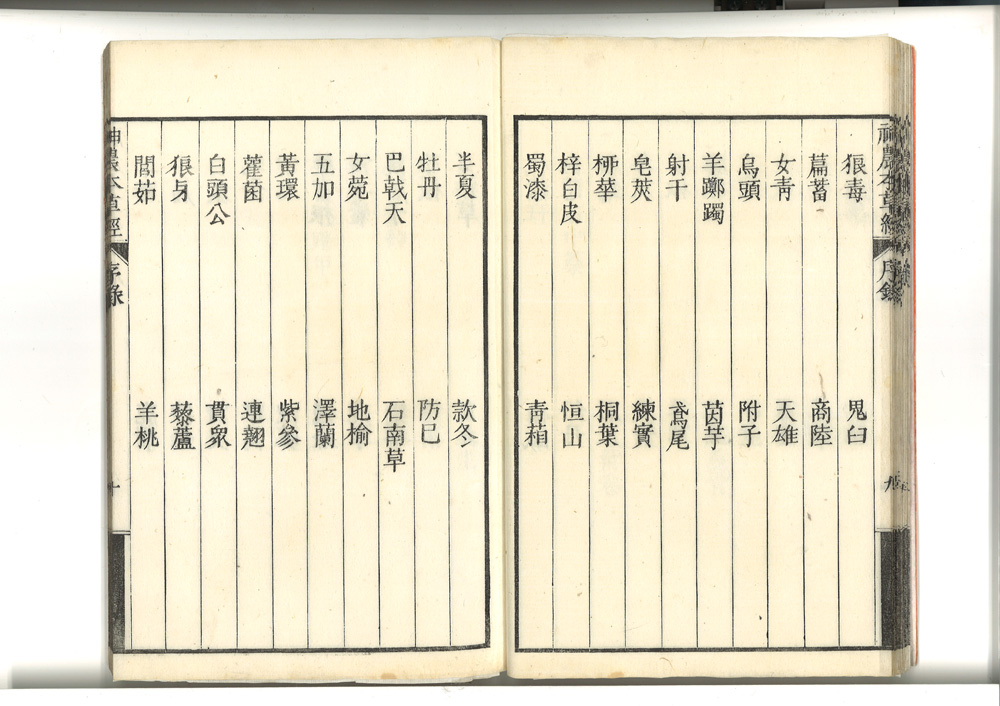 神農本草經
序錄
九
狼毒 鬼臼
萹蓄 商陸
女青 天雄
烏頭 附子
羊躑躅 茵芋
射干 鳶尾
皂莢 練實
桺華 桐葉
梓白皮 恒山
蜀漆 青葙
半夏 款冬
牡丹 防已
巴戟天 石南草
女菀 地榆
五加 澤蘭
黃環 紫參
雚菌 連翹
白頭公 貫眾
狼牙 藜蘆
閭茹 羊桃
神農本草經
序錄
十